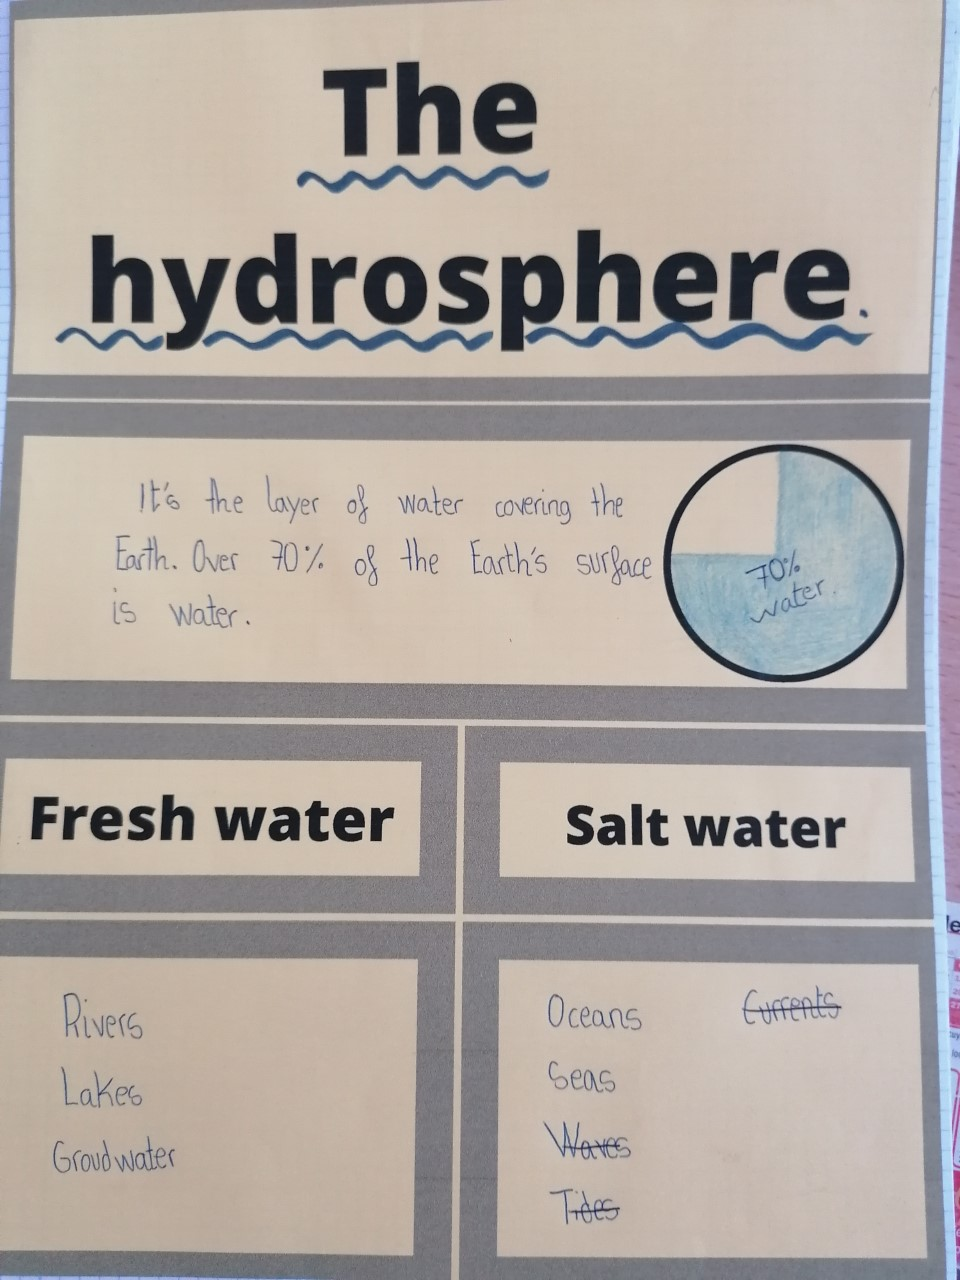 The
hydrosphere.
It's the layer of water covering the
Earth. Over 70% of the Earth's surface
is water.
70%
water.
Fresh water
Salt water
Rivers
Lakes
Groudwater
Oceans
Currents
Seas
Waves
Tides